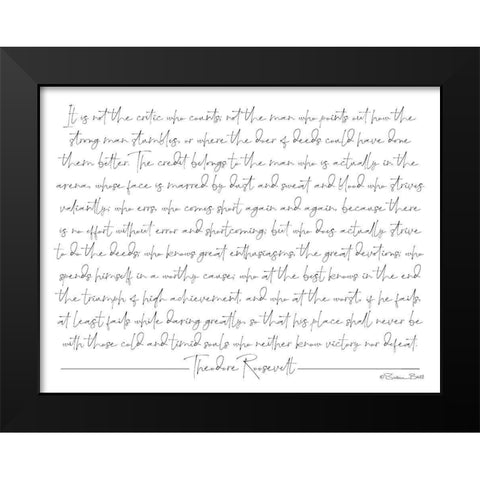 It is not the critic who counts, not the man who points out how the
strong man stumbles, or where the doer of deeds could have done
them better. The credit belongs to the man who is actually in the
arena, whose face is marred by dust and sweat and blood who strives
valiantly; who errs, who comes short again and again, because there
is no effort without error and shortcoming; but who does actually strive
to do the deeds; who knows great enthusiasms, the great devotions; who
spends himself in a worthy cause; who at the best knows in the end
the triumph of high achievement, and who at the worst, if he fails,
at least fails while daring greatly, so that his place shall never be
with those cold and timid souls who neither know victory nor defeat.
Theodore Roosevelt
©Susan Ball